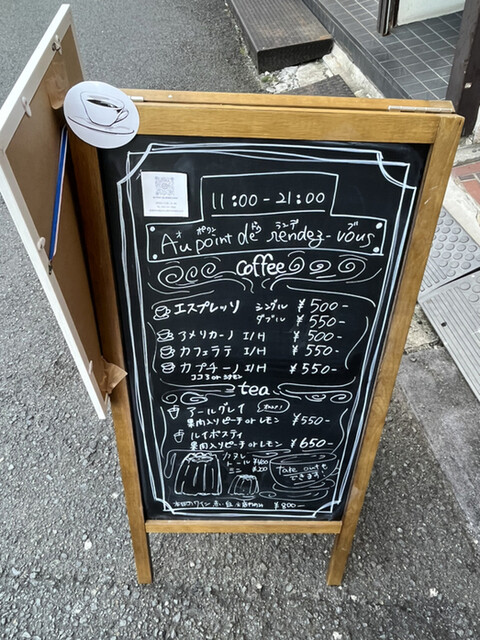 11:00-21:00
オ ポワン ドゥ ランデ ブ
Au point de rendez-vous
coffee
エスプレッソ シングル ¥500-
ダブル ¥550-
アメリカーノ I/H ¥500-
カフェラテ I/H ¥550-
カプチーノ I/H ¥550-
ココア or シナモン
tea
アールグレイ
果肉入りピーチ or レモン ¥550-
ルイボスティ
果肉入りピーチ or レモン ¥650-
カヌレ
トール ¥400
ミニ ¥200
Take outも
できます!
本日のワイン 赤、白 ¥800-